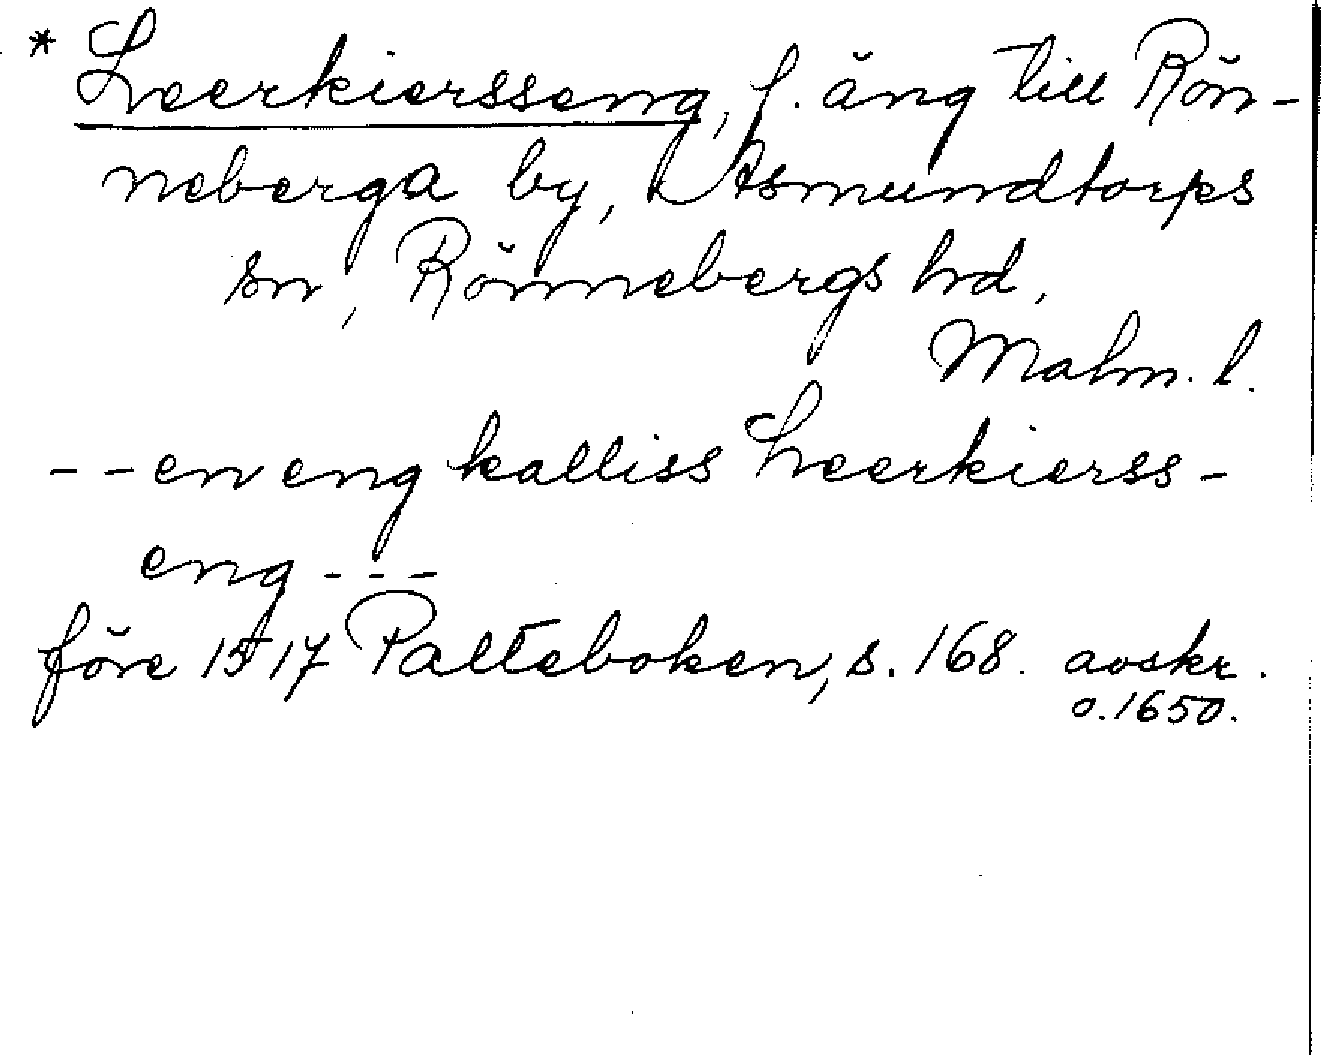 * Leerkiersseng, f. äng till Rön-
neberga by, Asmundtorps
sn, Rönnebergs hd,
Malm. l.
- - en eng kalliss Leerkierss-
eng - - -
före 1517 Palteboken, s. 168. avskr.
o. 1650.